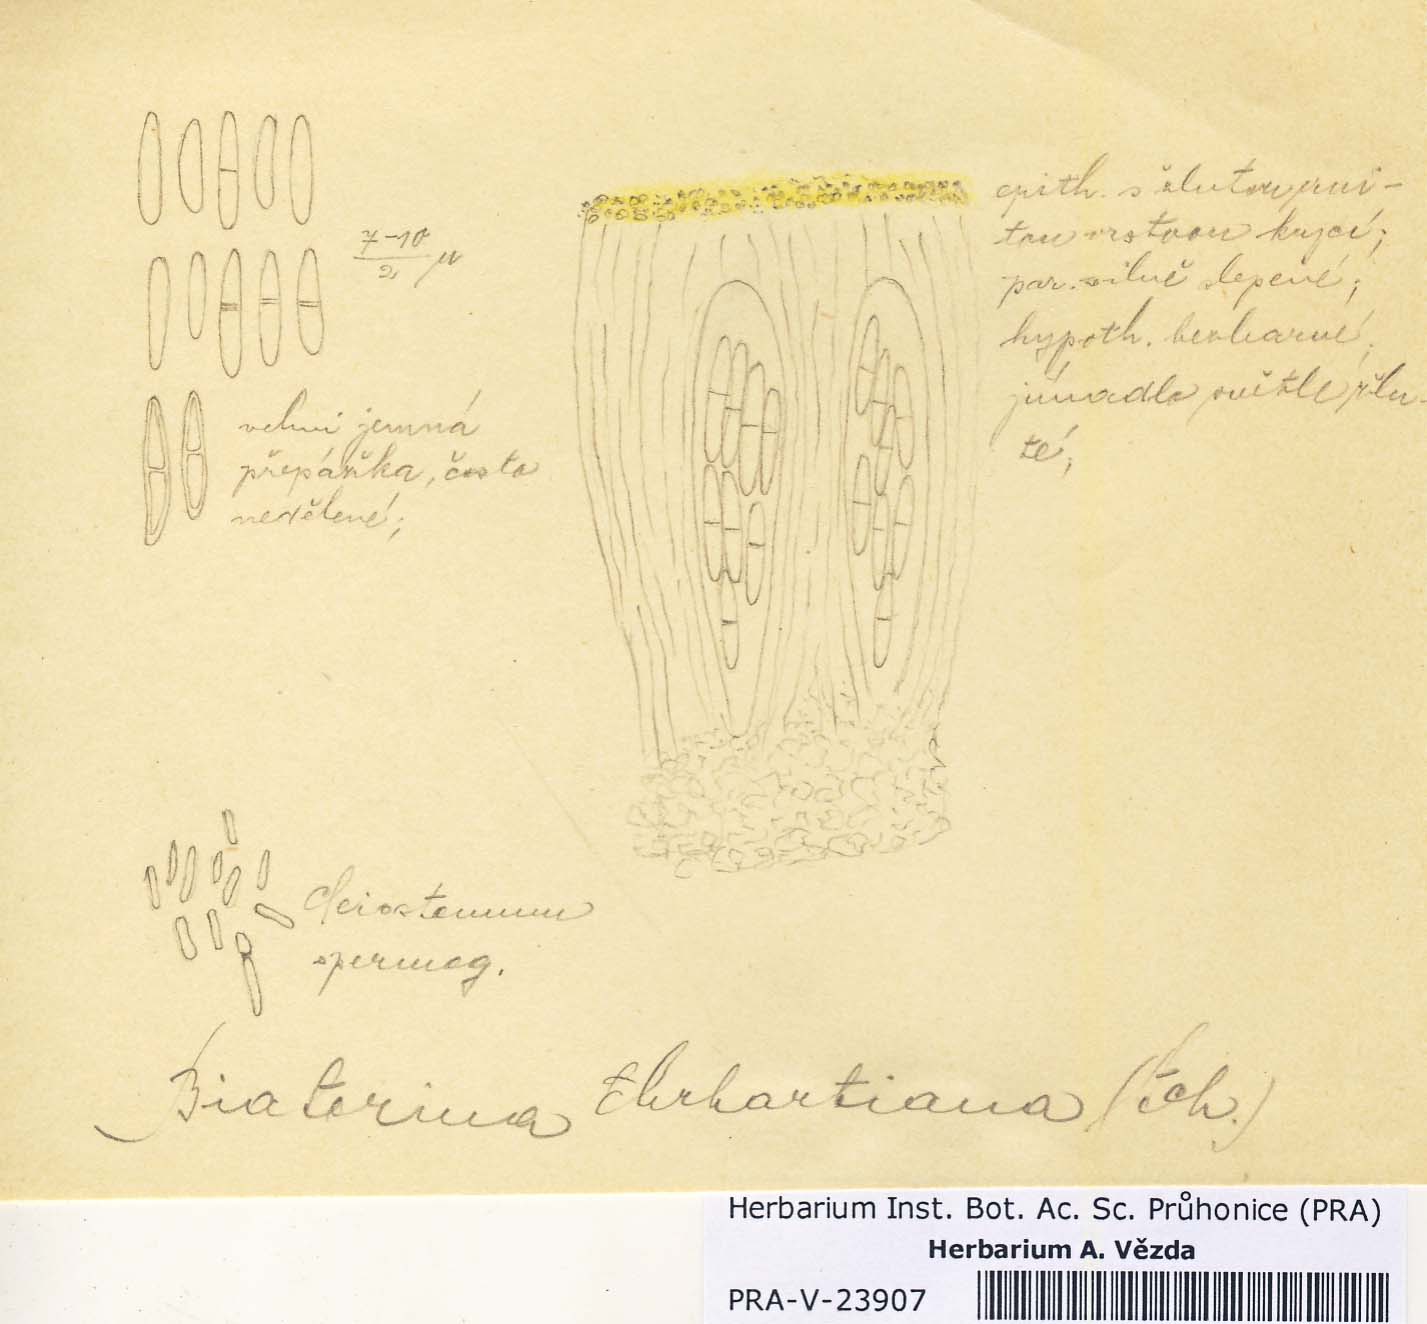 7-10
2 μ
epith. s žlutou zrni-
tou vrstvou krycí;
par. silně slepené;
hypoth. bezbarvé,
jímadlo světle žlu-
té;
velmi jemná
přepážka, často
nedělené;
Cleiostomum
spermog.
Biatorina Ehrhartiana (Ach.)
Herbarium Inst. Bot. Ac. Sc. Průhonice (PRA)
Herbarium A. Vězda
PRA-V-23907